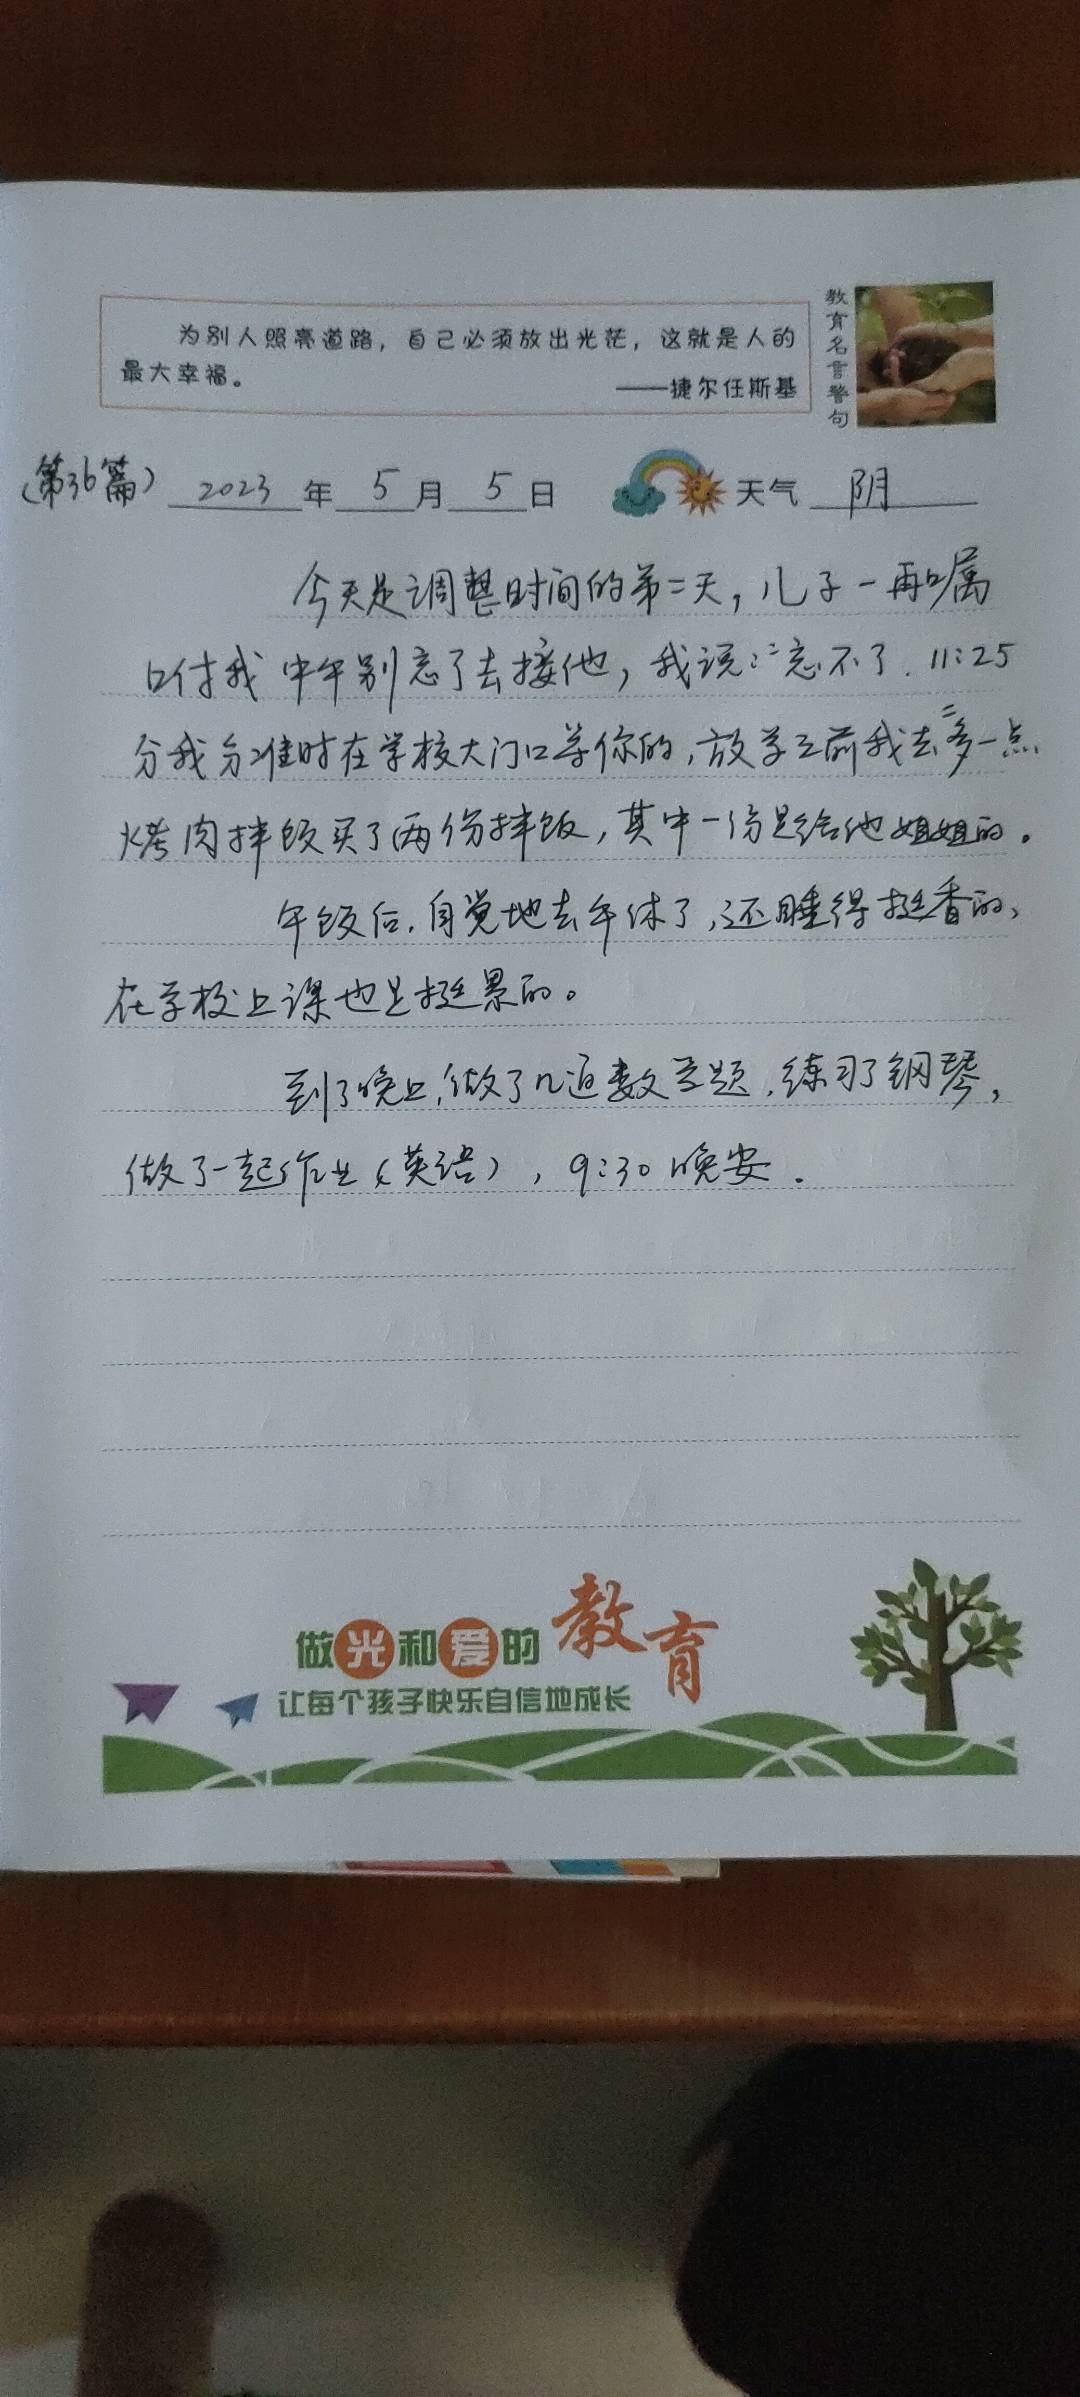 为别人照亮道路，自己必须放出光茫，这就是人的
最大幸福。
——捷尔任斯基
教育名言警句
（第36篇）2023年5月5日 天气 阴
今天是调整时间的第二天，儿子一再嘱
咐我中午别忘了去接他，我说："忘不了.11:25
分我会准时在学校大门口等你的，放学之前我去"多一点
烤肉拌饭买了两份拌饭，其中一份是给他姐姐的。
午饭后.自觉地去午休了，还睡得挺香的，
在学校上课也是挺累的。
到了晚上，做了几道数学题.练习了钢琴，
做了一起作业（英语），9:30晚安.
做光和爱的教育
让每个孩子快乐自信地成长